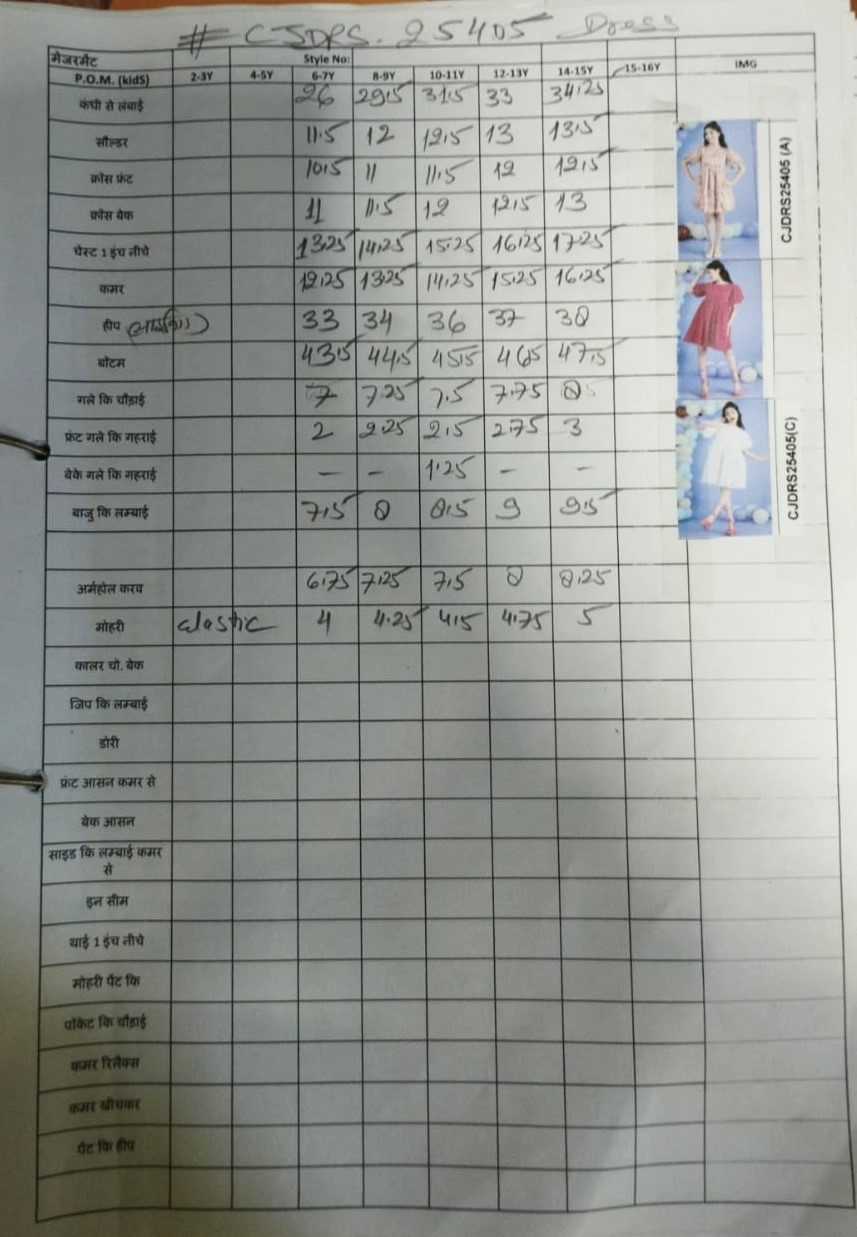 # CJDRS. 25405 Dress
मेजरमेंट Style No:
P.O.M. (kidS) 2-3Y 4-5Y 6-7Y 8-9Y 10-11Y 12-13Y 14-15Y 15-16Y IMG
कंधी से लंबाई 26 29.5 31.5 33 34.25
सौल्डर 11.5 12 12.5 13 13.5
क्रोस फ्रंट 10.5 11 11.5 12 12.5
क्रोस बेक 11 11.5 12 12.5 13
चेस्ट 1 इंच नीचे 13.25 14.25 15.25 16.25 17.25
कमर 12.25 13.25 14.25 15.25 16.25
हीप 33 34 36 37 38
बोटम 43.5 44.5 45.5 46.5 47.5
गले कि चौड़ाई 7 7.25 7.5 7.75 8
फ्रंट गले कि गहराई 2 2.25 2.5 2.75 3
बेके गले कि गहराई - - 1.25 - -
बाजु कि लम्बाई 7.5 8 8.5 9 9.5
अर्महोल करव 6.75 7.25 7.5 8 8.25
मोहरी elastic 4 4.25 4.5 4.75 5
कालर चो. बेक
जिप कि लम्बाई
डोरी
फ्रंट आसन कमर से
बेक आसन
साइड कि लम्बाई कमर
से
इन सीम
थाई 1 इंच नीचे
मोहरी पैंट कि
पॉकेट कि चौड़ाई
कमर रिलैक्स
कमर खीचकर
पैंट कि हीप
CJDRS25405 (A)
CJDRS25405(C)